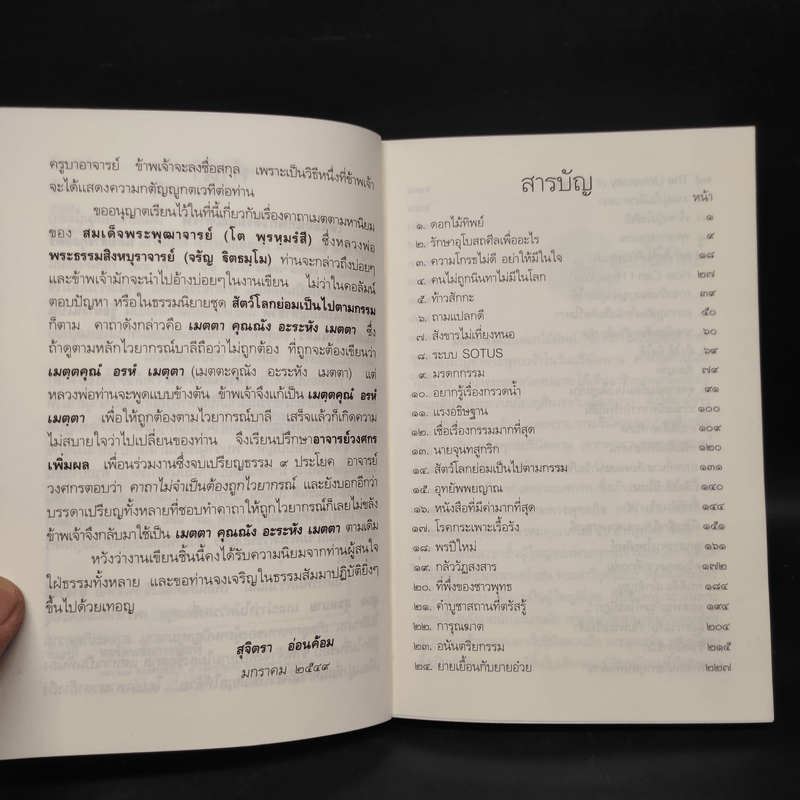 ครูบาอาจารย์ ข้าพเจ้าจะลงชื่อสกุล เพราะเป็นวิธีหนึ่งที่ข้าพเจ้า
จะได้แสดงความกตัญญูกตเวทีต่อท่าน
ขออนุญาตเรียนไว้ในที่นี้เกี่ยวกับเรื่องคาถาเมตตามหานิยม
ของ สมเด็จพระพุฒาจารย์ (โต พฺรหฺมรํสี) ซึ่งหลวงพ่อ
พระธรรมสิงหบุราจารย์ (จรัญ ฐิตธมฺโม) ท่านจะกล่าวถึงบ่อยๆ
และข้าพเจ้ามักจะนำไปอ้างบ่อยๆในงานเขียน ไม่ว่าในคอลัมน์
ตอบปัญหา หรือในธรรมนิยายชุด สัตว์โลกย่อมเป็นไปตามกรรม
ก็ตาม คาถาดังกล่าวคือ เมตตา คุณณัง อะระหัง เมตตา ซึ่ง
ถ้าดูตามหลักไวยากรณ์บาลีถือว่าไม่ถูกต้อง ที่ถูกจะต้องเขียนว่า
เมตฺตคุณํ อรหํ เมตฺตา (เมตตะคุณัง อะระหัง เมตตา) แต่
หลวงพ่อท่านจะพูดแบบข้างต้น ข้าพเจ้าจึงแก้เป็น เมตฺตคุณํ อรหํ
เมตฺตา เพื่อให้ถูกต้องตามไวยากรณ์บาลี เสร็จแล้วก็เกิดความ
ไม่สบายใจว่าไปเปลี่ยนของท่าน จึงเรียนปรึกษาอาจารย์วงศกร
เพิ่มผล เพื่อนร่วมงานซึ่งจบเปรียญธรรม ๙ ประโยค อาจารย์
วงศกรตอบว่า คาถาไม่จำเป็นต้องถูกไวยากรณ์ และยังบอกอีกว่า
บรรดาเปรียญทั้งหลายที่ชอบทำคาถาให้ถูกไวยากรณ์ก็เลยไม่ขลัง
ข้าพเจ้าจึงกลับมาใช้เป็น เมตตา คุณณัง อะระหัง เมตตา ตามเดิม
หวังว่างานเขียนชิ้นนี้คงได้รับความนิยมจากท่านผู้สนใจ
ใฝ่ธรรมทั้งหลาย และขอท่านจงเจริญในธรรมสัมมาปฏิบัติยิ่งๆ
ขึ้นไปด้วยเทอญ
สุจิตรา อ่อนค้อม
มกราคม ๒๕๔๙
สารบัญ
หน้า
๑. ดอกไม้ทิพย์ ๑
๒. รักษาอุโบสถศีลเพื่ออะไร ๙
๓. ความโกรธไม่ดี อย่าให้มีในใจ ๑๘
๔. คนไม่ถูกนินทาไม่มีในโลก ๒๗
๕. ท้าวสักกะ ๓๙
๖. ถามแปลกดี ๕๐
๗. สังขารไม่เที่ยงหนอ ๖๐
๘. ระบบ SOTUS ๖๙
๙. มรดกกรรม ๗๙
๑๐. อยากรู้เรื่องกรวดน้ำ ๙๑
๑๑. แรงอธิษฐาน ๑๐๐
๑๒. เชื่อเรื่องกรรมมากที่สุด ๑๐๙
๑๓. นายจุนทสูกริก ๑๒๐
๑๔. สัตว์โลกย่อมเป็นไปตามกรรม ๑๓๑
๑๕. อุทัยพพยาณ ๑๔๐
๑๖. หนังสือที่มีค่ามากที่สุด ๑๔๔
๑๗. โรคกระเพาะเรื้อรัง ๑๕๑
๑๘. พรปีใหม่ ๑๖๑
๑๙. กลัววัฏสงสาร ๑๗๒
๒๐. ที่พึ่งของชาวพุทธ ๑๘๔
๒๑. คำบูชาสถานที่ตรัสรู้ ๑๙๔
๒๒. การุณฆาต ๒๐๔
๒๓. อนันตริยกรรม ๒๑๕
๒๔. ยายเยื้อนกับยายอ๋วย ๒๒๗